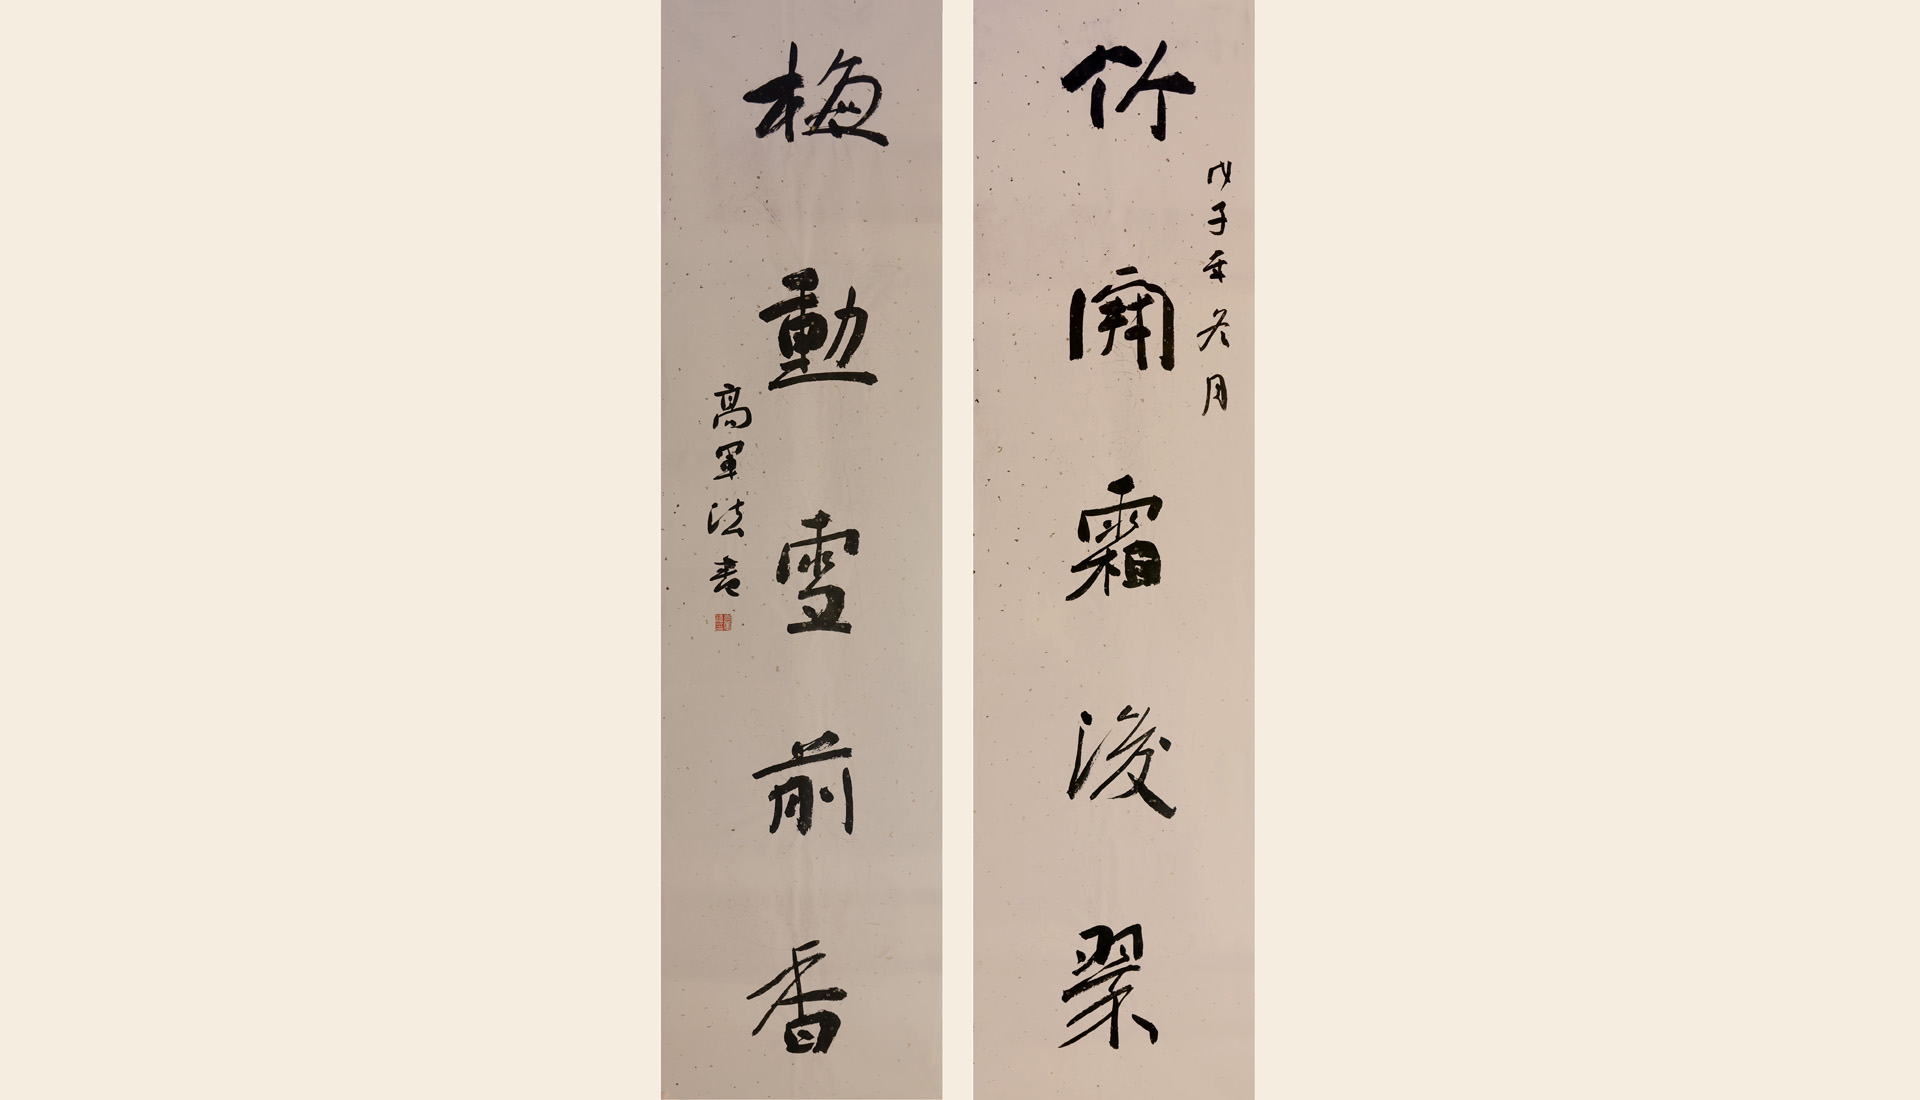 戊子年冬月
竹開霜後翠
梅動雪前香
高軍法書